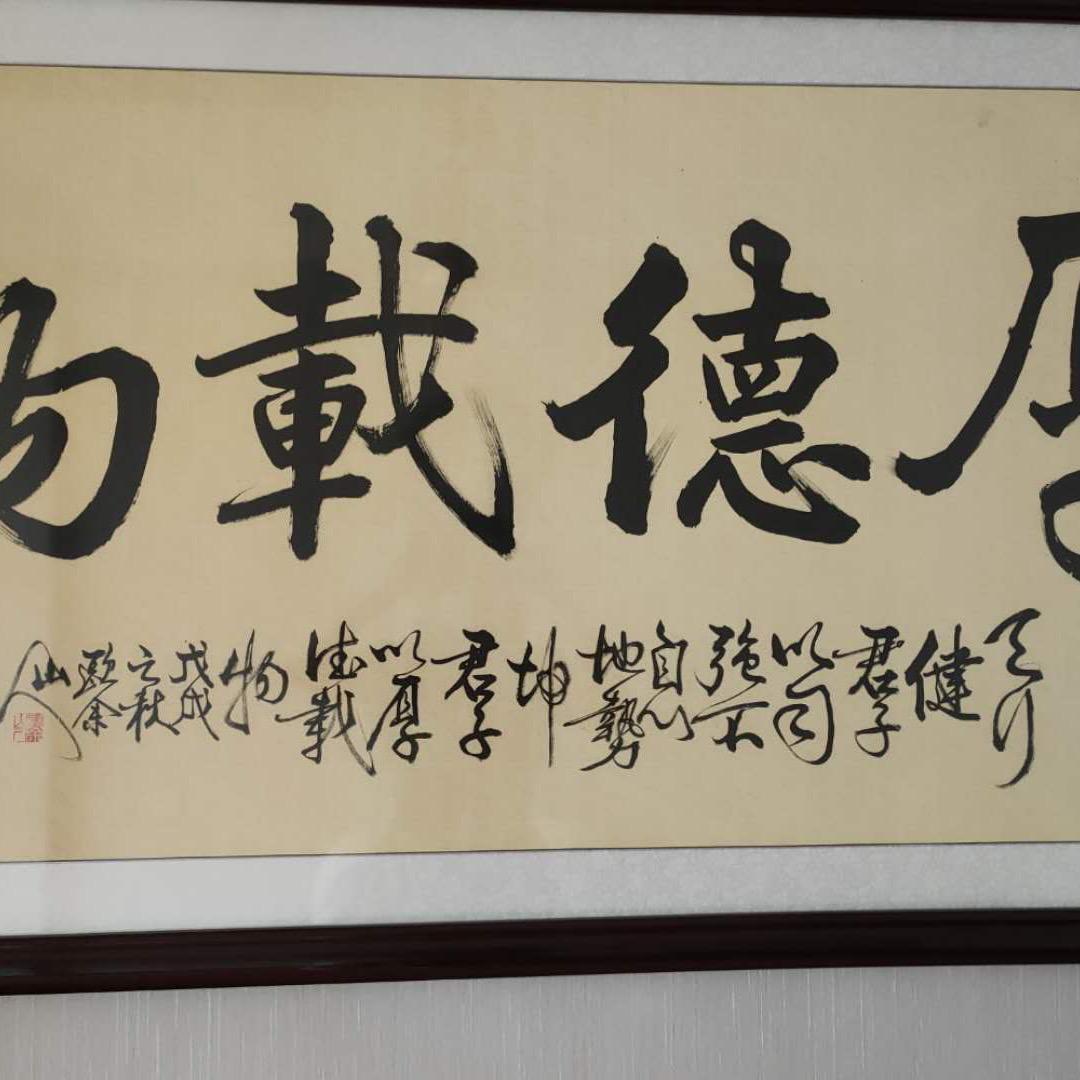 厚德載物
天行健君子以自強不息地勢坤君子以厚德載物戊戌之秋山人